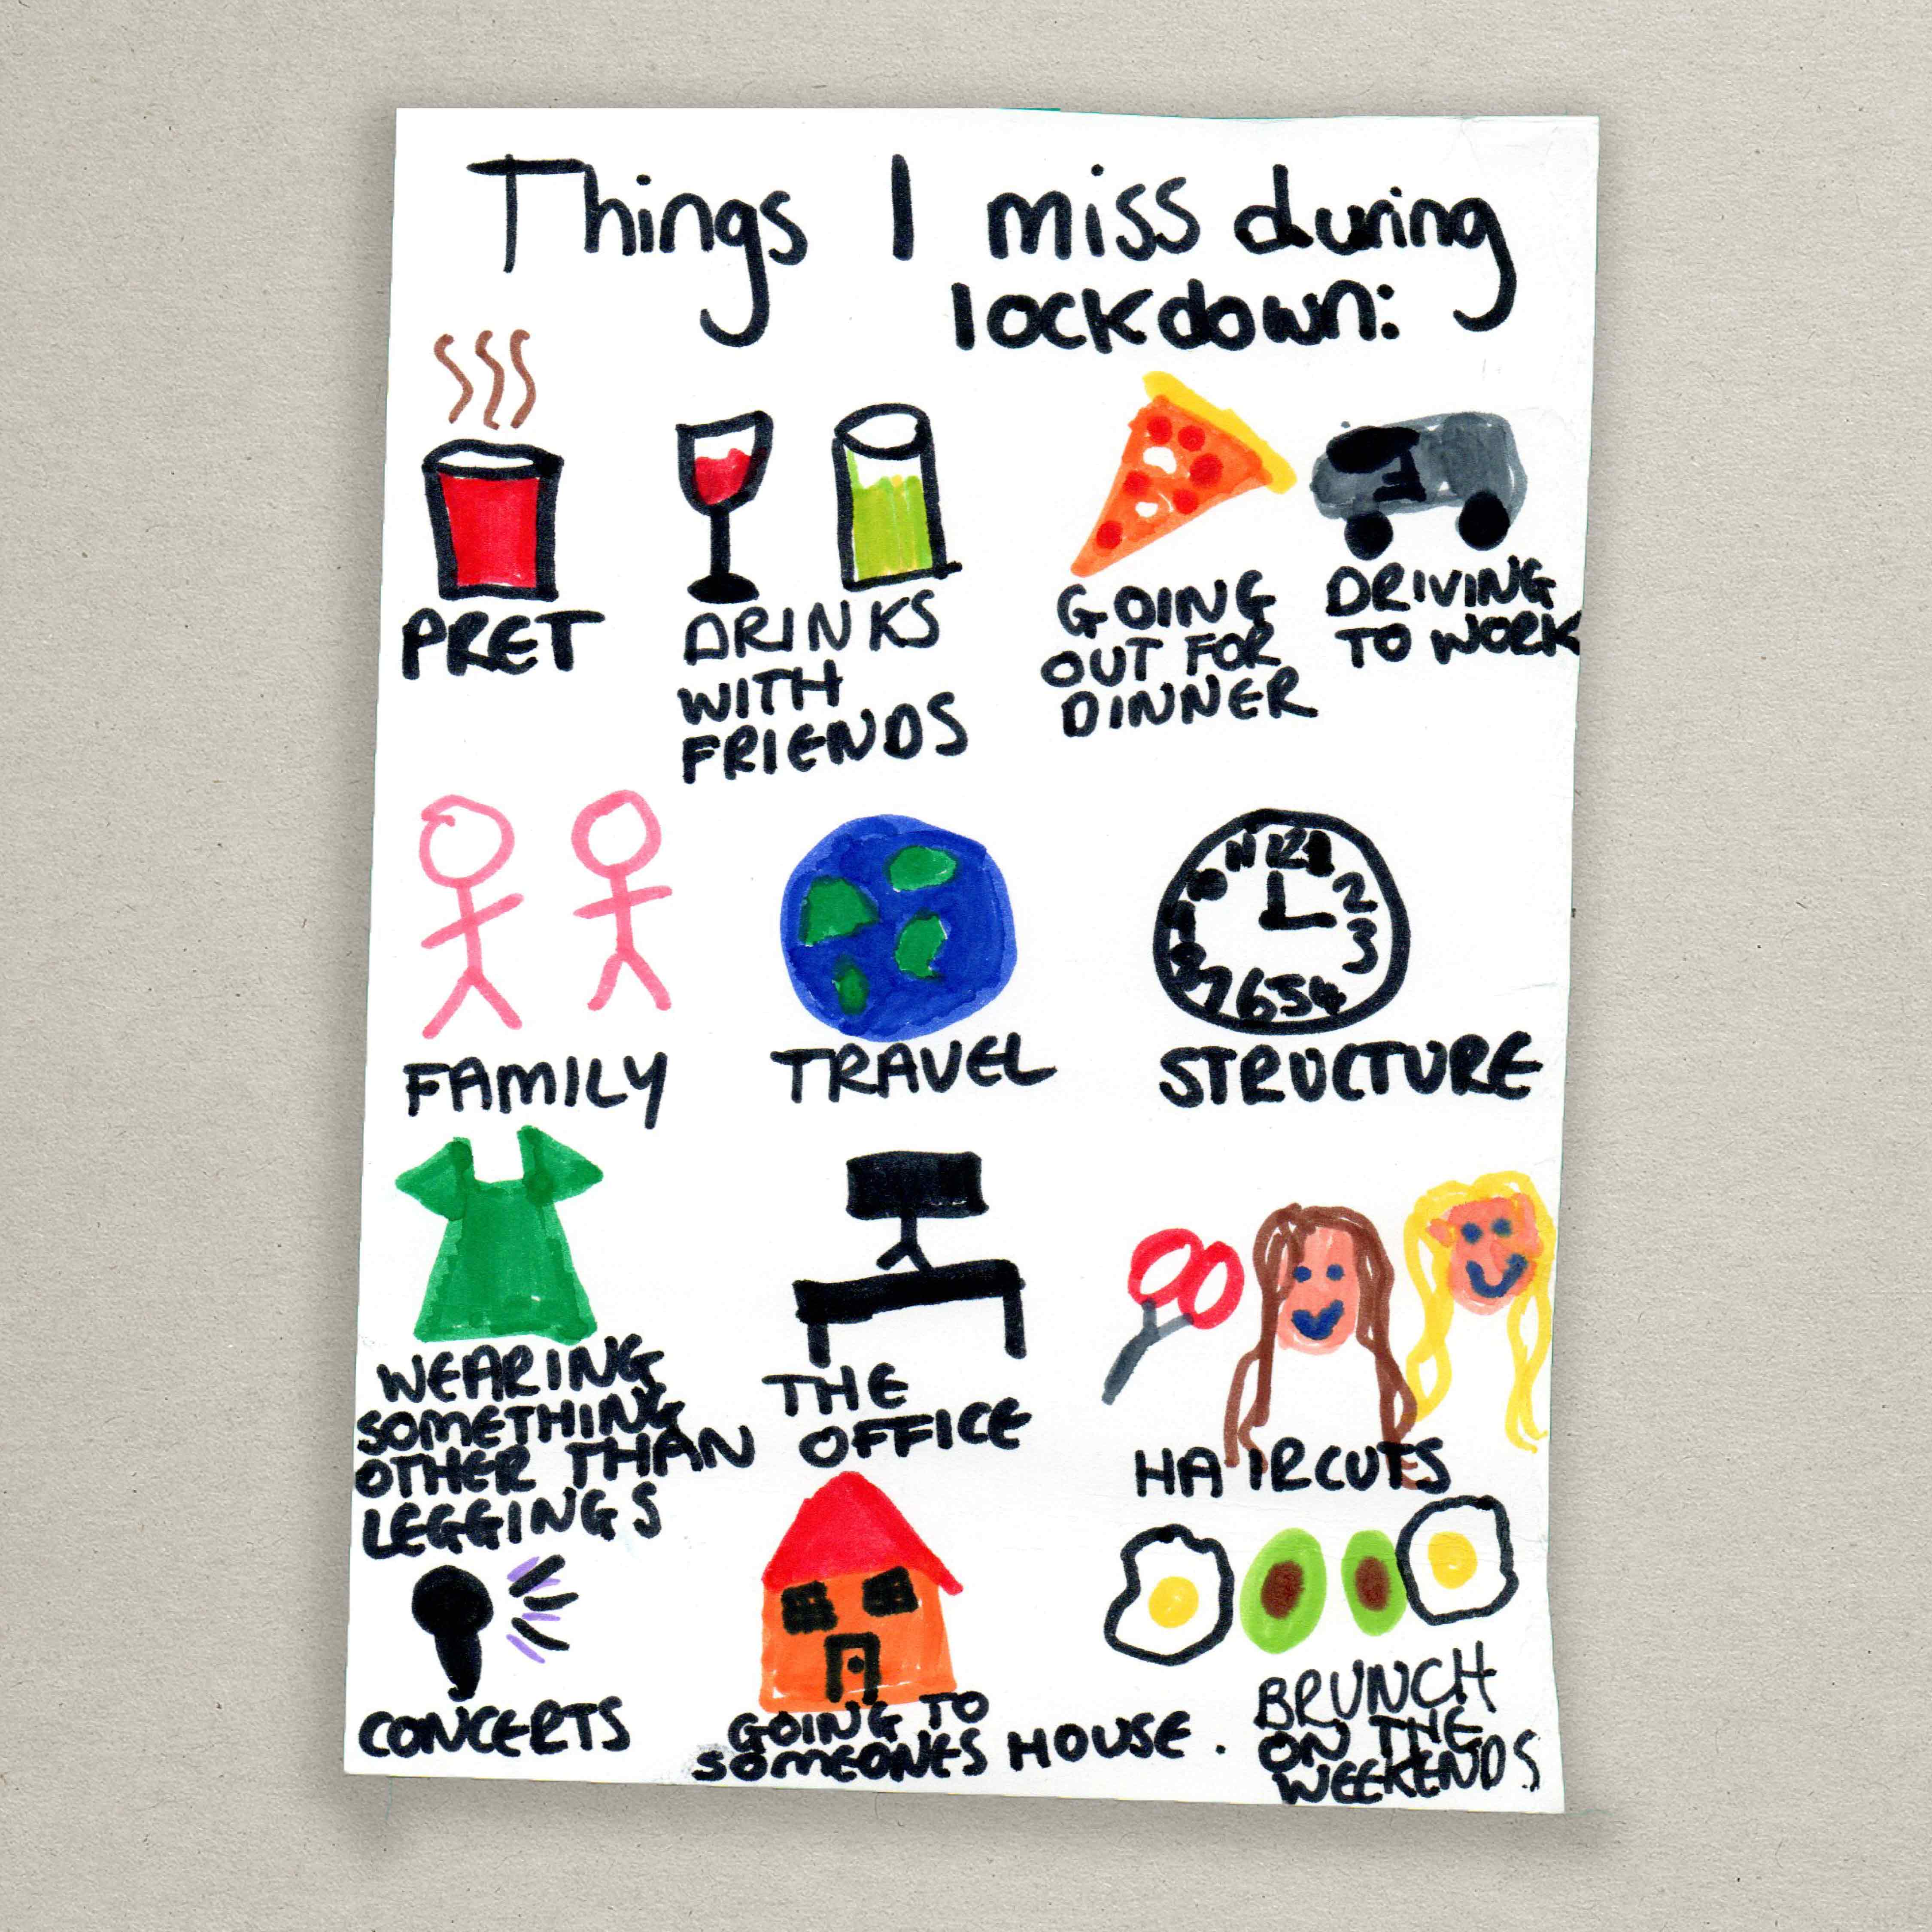 Things I miss during
lockdown:
PRET
DRINKS
WITH
FRIENDS
GOING
OUT FOR
DINNER
DRIVING
TO WORK
FAMILY
TRAVEL
12 1
2
3
7 6 5 4
STRUCTURE
WEARING
SOMETHING
OTHER THAN
LEGGINGS
THE
OFFICE
HAIRCUTS
CONCERTS
GOING TO
SOMEONES HOUSE.
BRUNCH
ON THE
WEEKENDS